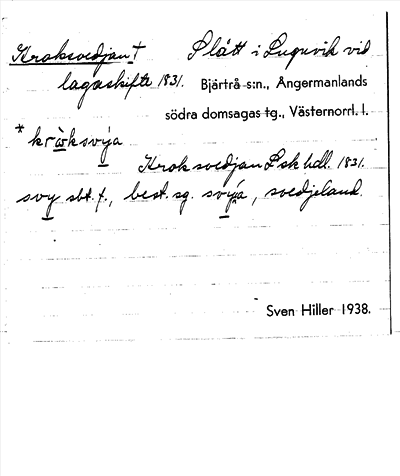 Kroksvedjan † Slått i Lugnvik vid
lagaskifte 1831. Bjärtrå s:n., Ångermanlands
södra domsagas tg., Västernorrl. l.
* kròksvy̱ja
Kroksvedjan Lskhdl. 1831.
svy sbt. f., best. sg. svy̱ja, svedjeland.
Sven Hiller 1938.